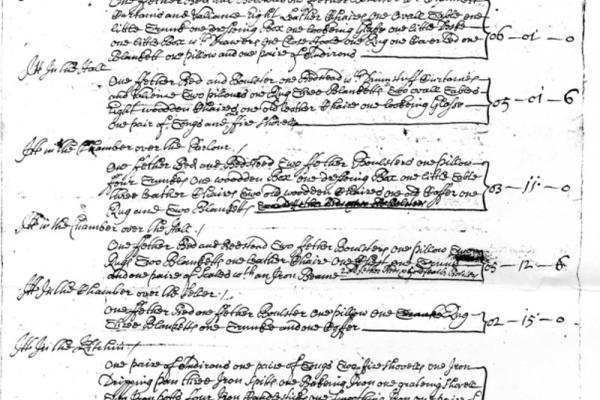 Curtaines and Valliance Eight Leather Chaires one Ovall Table one
little Trunk one dressing Box one Lookeing Glass one little
one little Box wth Drawers one Close one Rug one Covered one
Blankett one pillow and one paire of Andirons 06 - 01 - 0
Itt In the Hall
One ffether Bed and Boulster one Bedstead wth Curtaines
and Vallione Two pillowes one Rug Three Blanketts Two ovall Tables
Eight woodden Chaires one old leather Chaire one Lookeing Glasse
one paire of Tongs and ffire Shovell 05 - 01 - 6
Itt in the Chamber over the Parlour /
One ffether Bed and Bedstead Two ffether Boulsters one pillow
ffour Trunkes one woodden Box one dressing Box one little Table
Three Leather Chaires Two old woodden Chaires one old Coffer one
Rug and Two Blanketts 03 - 11 - 0
Itt in the Chamber over the Hall /
One ffether Bed and Bedstead Two ffether Boulsters one pillow
Rugs Two Blanketts one Leather Chaire one Chest one Trunk
and one paire of Scales wth an Iron Beame - 12 - 6
Itt In the Chamber over the /
One ffether Bed one ffether Boulster one pillow one Rug
Three Blanketts one Trunke and one Coffer 02 - 15 - 0
Itt In the Kitchin /
One paire of Andirons one paire of Tongs Two fire shovells one Iron
Dripping pan three Iron Spitts one Bakeing Iron one grateing shovell